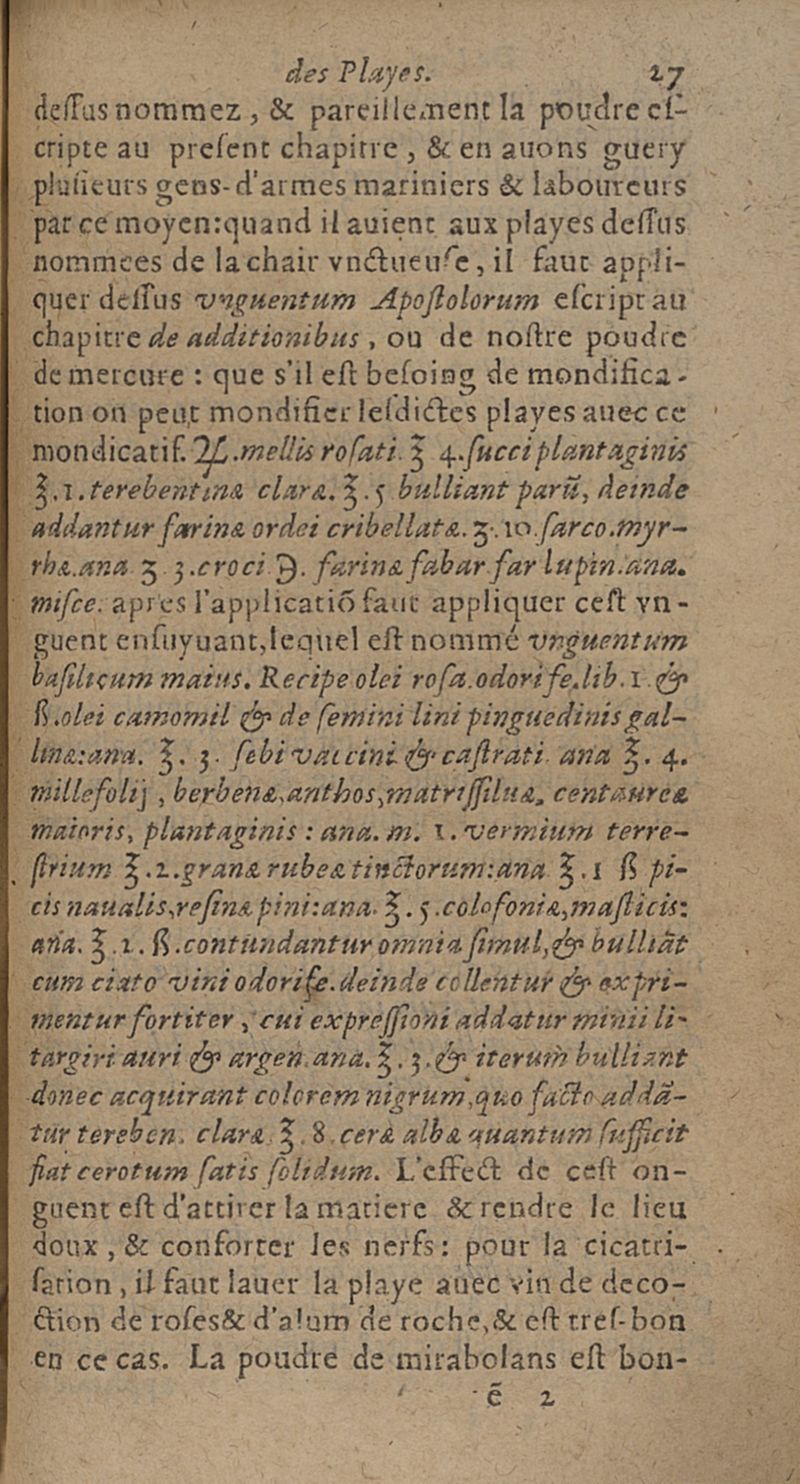 des Playes. 27
deſſus nommez, & pareillement la poudre eſ-
cripte au preſent chapitre, & en auons guery
pluſieurs gens-d'armes mariniers & laboureurs
par ce moyen:quand il auient aux playes deſſus
nommees de la chair vnctueuſe, il faut appli-
quer deſſus vnguentum Apoſtolorum eſcript au
chapitre de additionibus, ou de noſtre poudre
de mercure : que s'il eſt beſoing de mondifica-
tion on peut mondifier leſdictes playes auec ce
mondicatif. ♃.mellis roſati. ℥ 4.ſucci plantaginis
℥.1.terebentinæ claræ.℥.5 bulliant parũ, deinde
addantur farinæ ordei cribellatæ.ʒ.10.ſarco.myr-
rhæ.ana ʒ 3.croci ℈. farinæ fabar far lupin.ana.
miſce. apres l'applicatiõ faut appliquer ceſt vn-
guent enſuyuant,lequel eſt nommé vnguentum
baſilicum maius. Recipe olei roſa.odorife.lib.1.&
ß.olei camomil & de ſemini lini pinguedinis gal-
linæ:ana. ℥. 3. ſebi vaccini & caſtrati. ana ℥. 4.
millefolij, berbenæ,anthos,matriſſiluæ, centaureæ
maioris, plantaginis : ana. m. 1. vermium terre-
ſtrium ℥.2.granæ rubeæ tinctorum:ana ℥.1 ß pi-
cis naualis,reſinæ pini:ana. ℥. 5.colofoniæ,maſticis:
ana. ℥.1. ß.contundantur omnia ſimul,& bulliãt
cum ciato vini odorife.deinde collentur & expri-
mentur fortiter, cui expreſſioni addatur minii li-
targiri auri & argen.ana.℥. 3.& iterum bulliant
donec acquirant colorem nigrum,quo facto addã-
tur tereben. claræ.℥.8.ceræ albæ quantum ſufficit
fiat cerotum ſatis ſolidum. L'effect de ceſt on-
guent eſt d'attirer la matiere & rendre le lieu
doux, & conforter les nerfs: pour la cicatri-
ſation, il faut lauer la playe auec vin de deco-
ction de roſes& d'alum de roche,& eſt treſ-bon
en ce cas. La poudre de mirabolans eſt bon-
ẽ 2